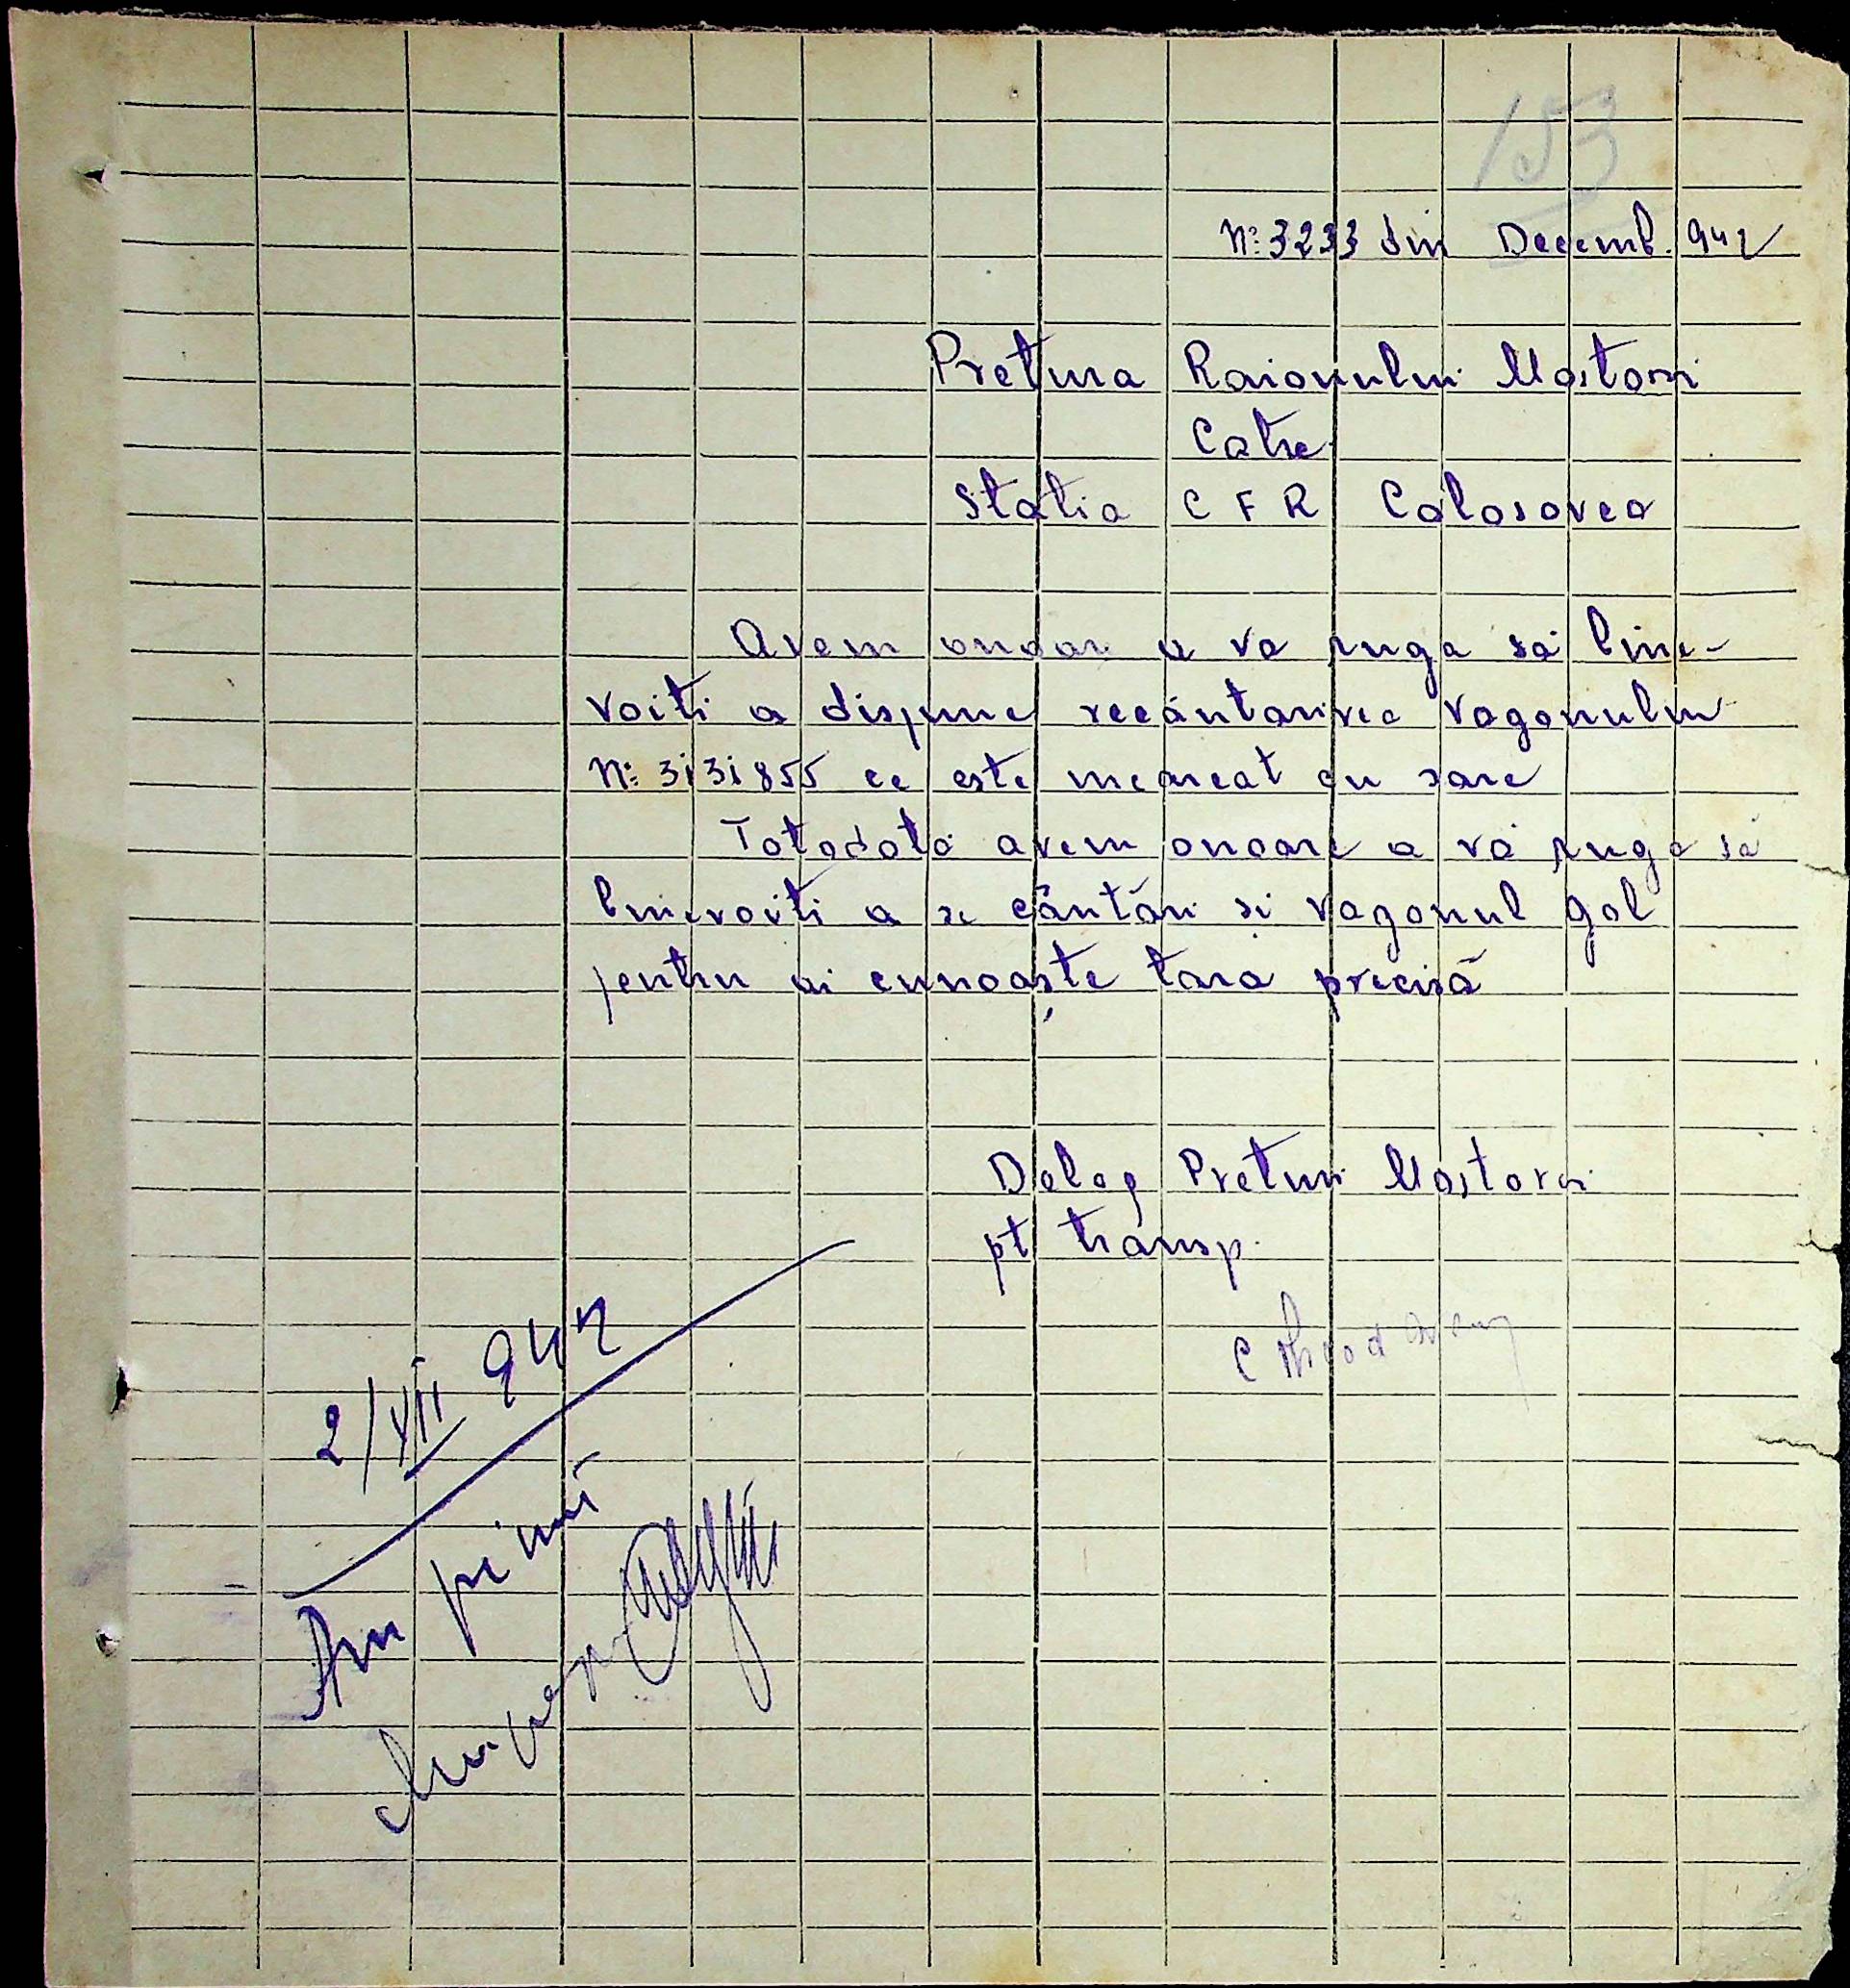 153
No: 3233 din Decemb. 942
Pretura Raionului Mostovoi
Catre
Statia C F R Colosovca
Avem onoar. a va ruga să bine-
voiti a dispune recăntarirea vagonului
No: 3i3i855 ce este incarcat cu sare
Totodată avem onoare a vă ruga să
binevoiti a se cântări si vagonul gol
pentru ai cunoaște tara precisă
Deleg Preturi Mostovoi
pt transp.
2/XII 942
Am primit